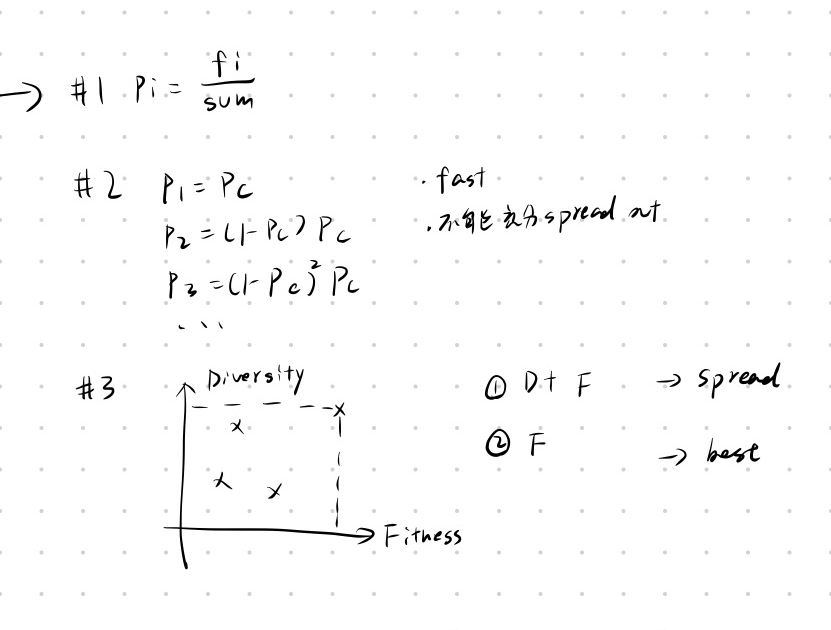 → #1 Pi = fi / sum
#2 P1 = Pc
P2 = (1-Pc) Pc
P3 = (1-Pc)² Pc
...
· fast
· 不能充分 spread out
#3
Diversity
Fitness
① D+ F → spread
② F → best